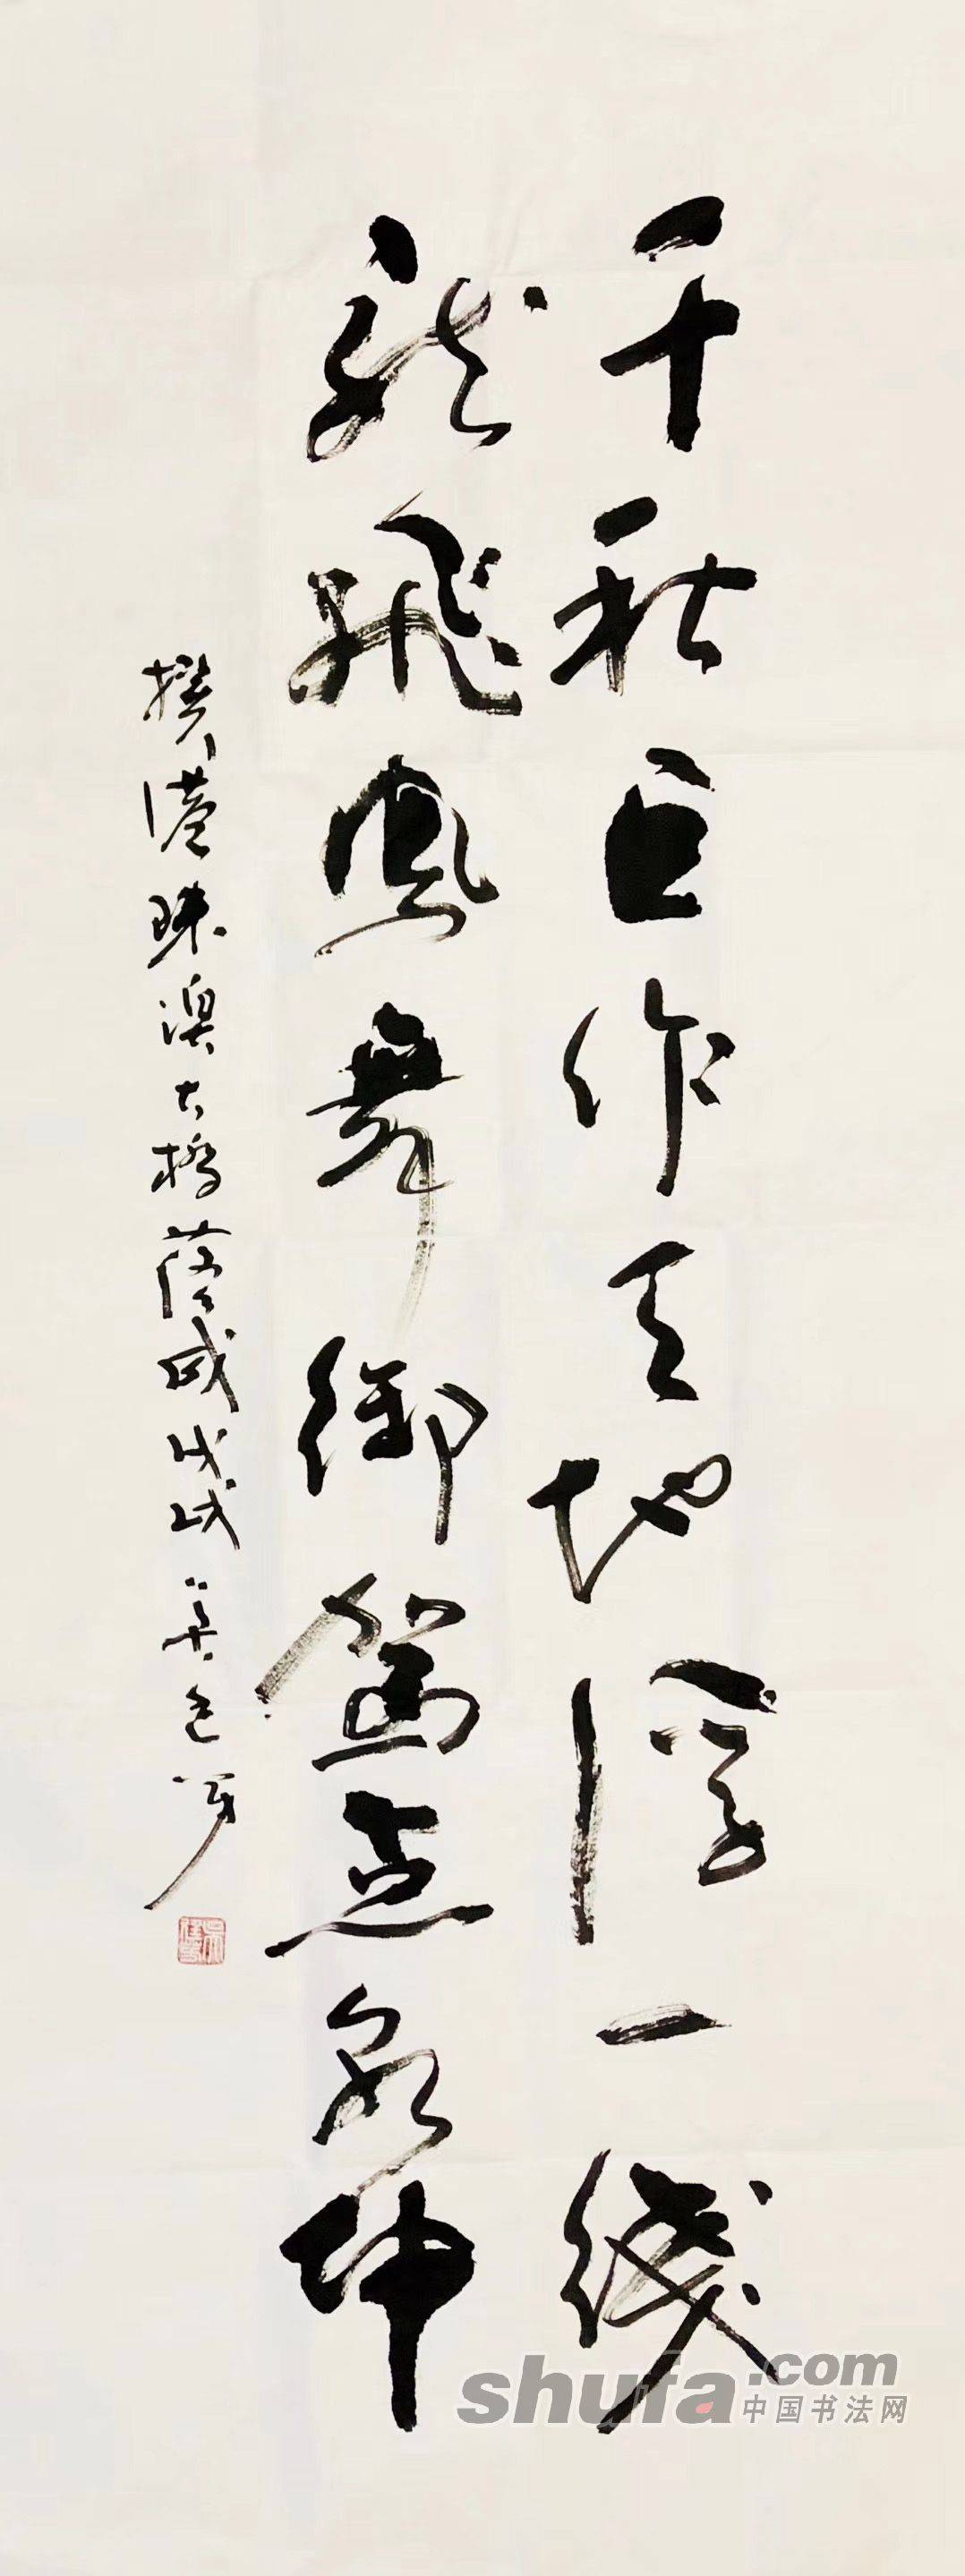 千秋巨作天地浮一线
龙飞凤舞御笔点乾坤
撰港珠澳大桥落成戊戌
shufa.com
中国书法网